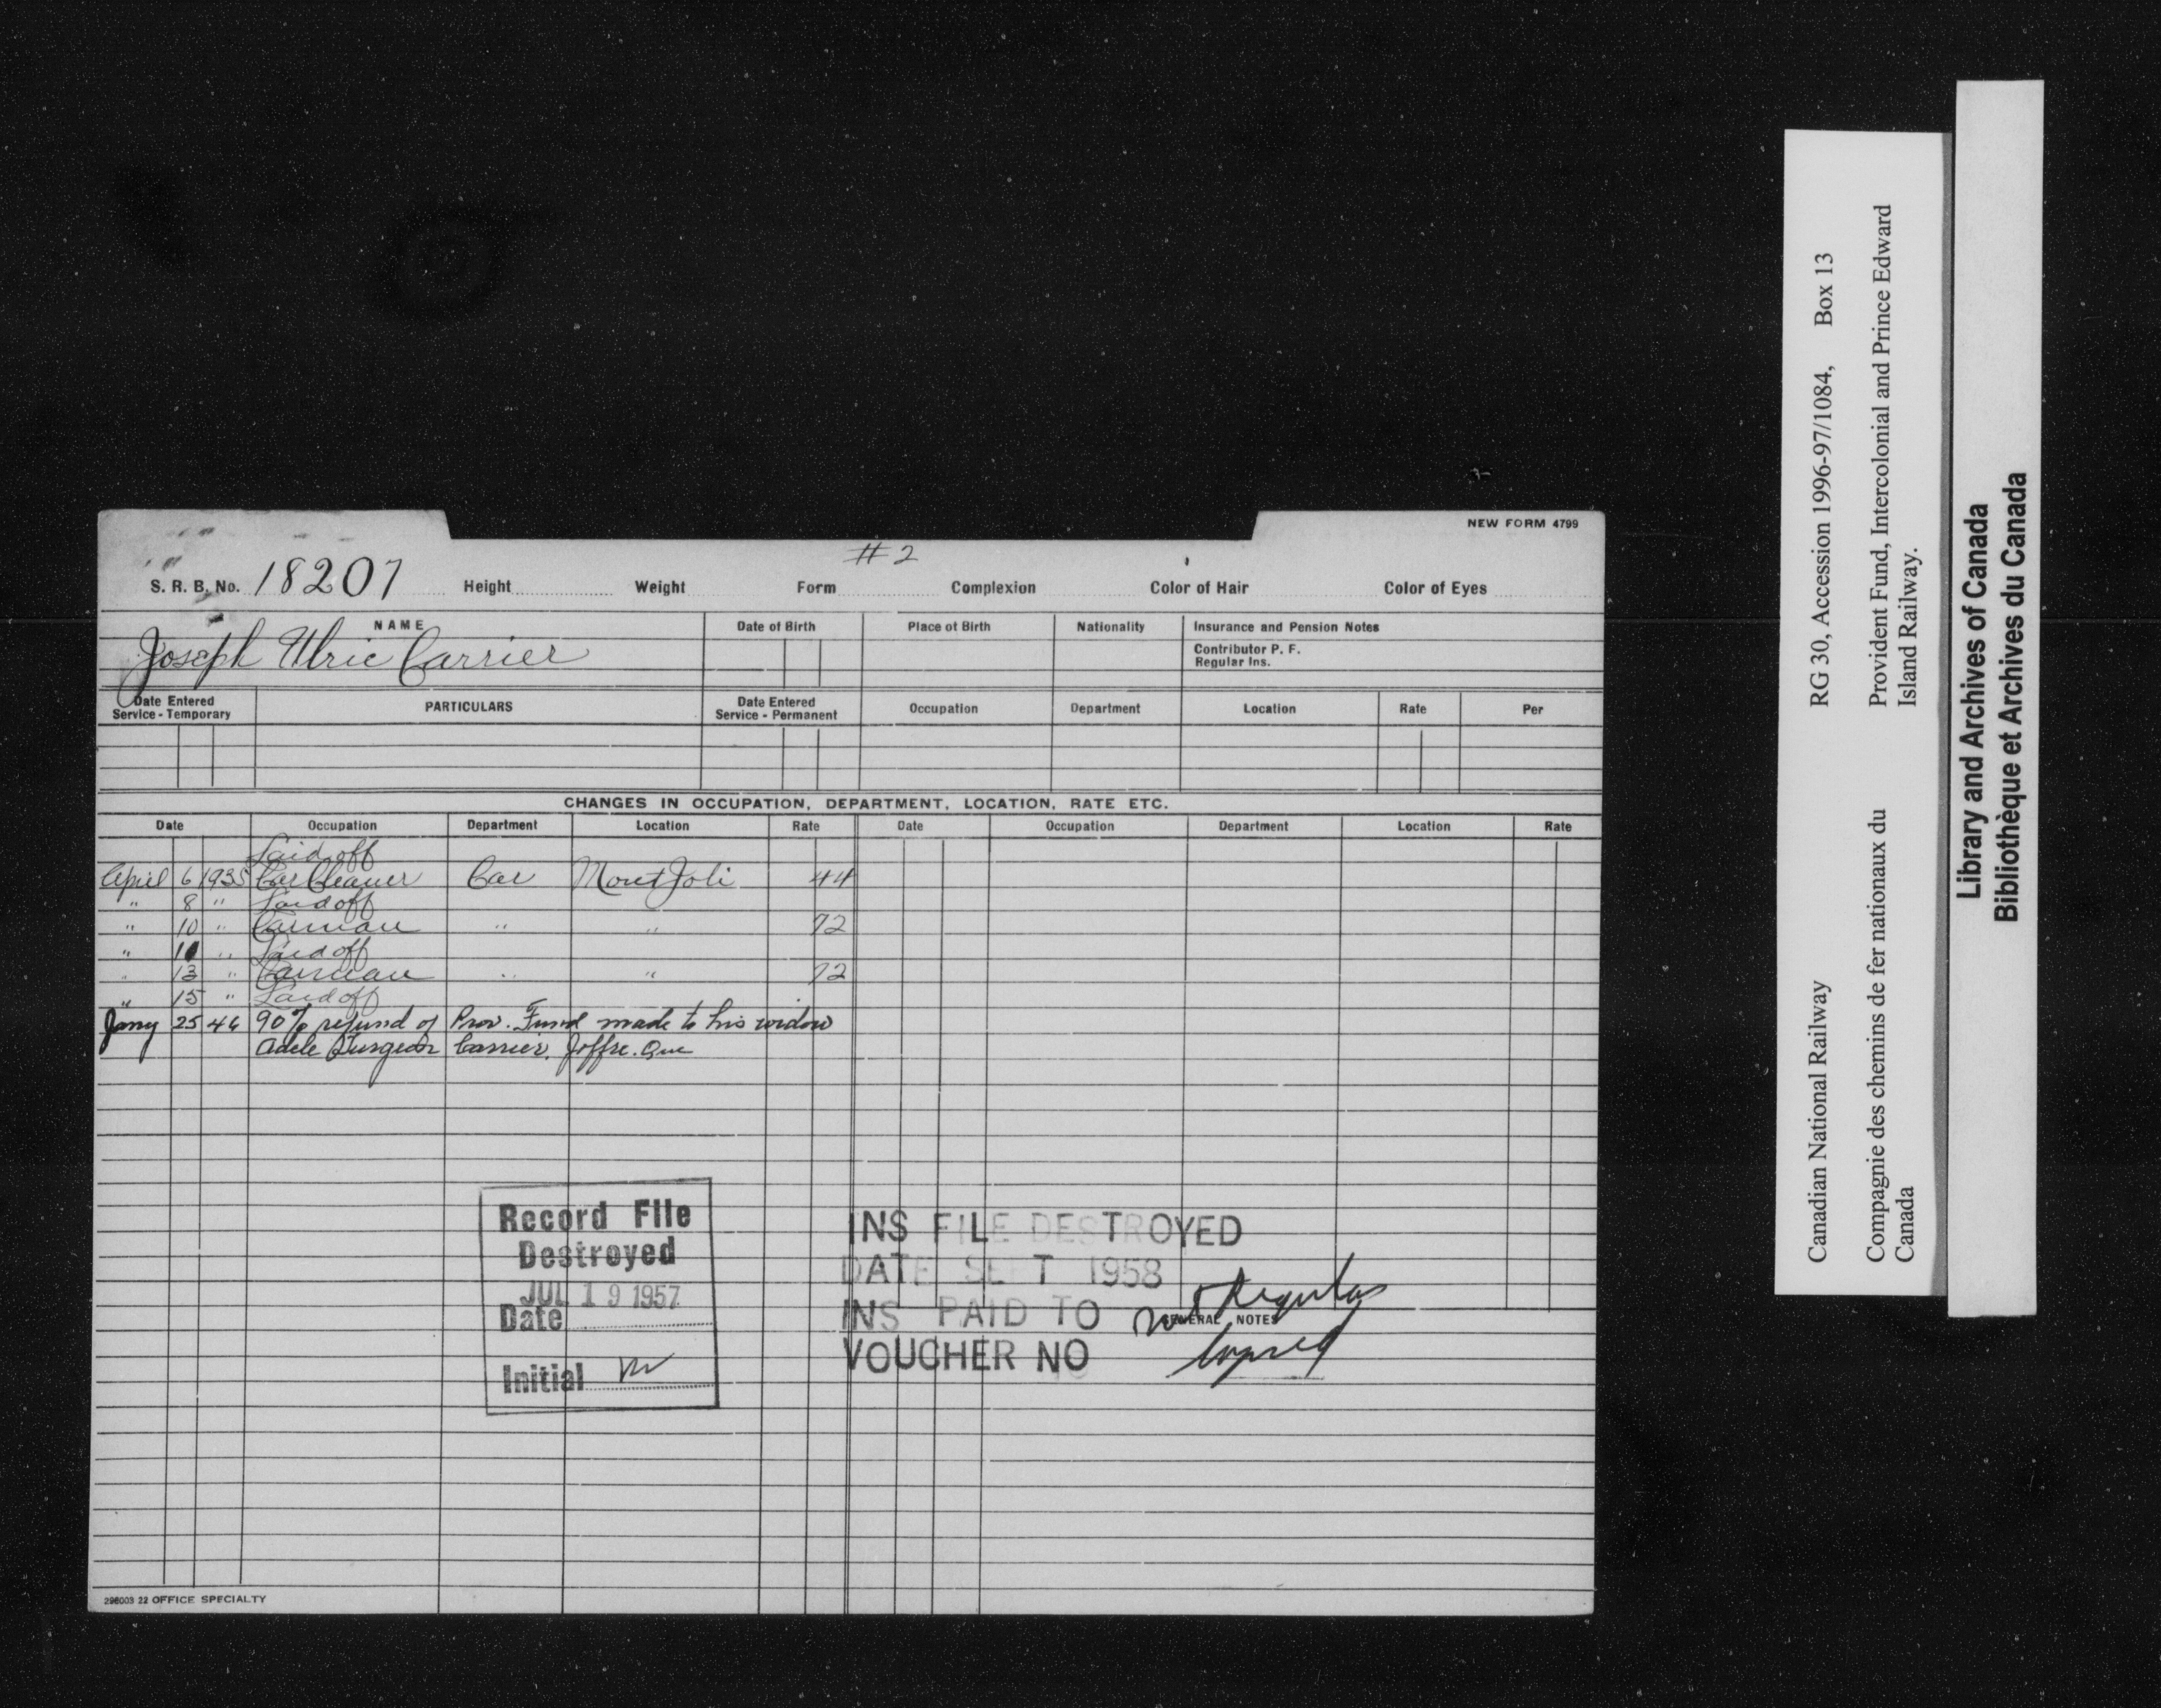 NEW FORM 4799
#2
S. R. B. No. 18207 Height Weight Form Complexion Color of Hair Color of Eyes
NAME Date of Birth Place of Birth Nationality Insurance and Pension Notes
Joseph Ulric Carrier
Contributor P. F.
Regular Ins.
Date Entered Service - Temporary PARTICULARS Date Entered Service - Permanent Occupation Department Location Rate Per
CHANGES IN OCCUPATION, DEPARTMENT, LOCATION, RATE ETC.
Date Occupation Department Location Rate Date Occupation Department Location Rate
Laid off
April 6 1935 Car Cleaner Car Mont Joli 44
" 8 " Laid off
" 10 " Carman " " 72
" 10 " Laid off
" 13 " Carman " " 72
" 15 " Laid off
Jany 25 46 90% refund of Prov. Fund made to his widow
Adele Turgeon Carrier, Joffre. Que
Record File
Destroyed
JUL 19 1957
Date
Initial
INS FILE DESTROYED
DATE SEPT 1958
INS PAID TO not Regular
GENERAL NOTES
VOUCHER NO
298003 22 OFFICE SPECIALTY
Canadian National Railway RG 30, Accession 1996-97/1084, Box 13
Compagnie des chemins de fer nationaux du Provident Fund, Intercolonial and Prince Edward
Canada Island Railway.
Library and Archives of Canada
Bibliothèque et Archives du Canada